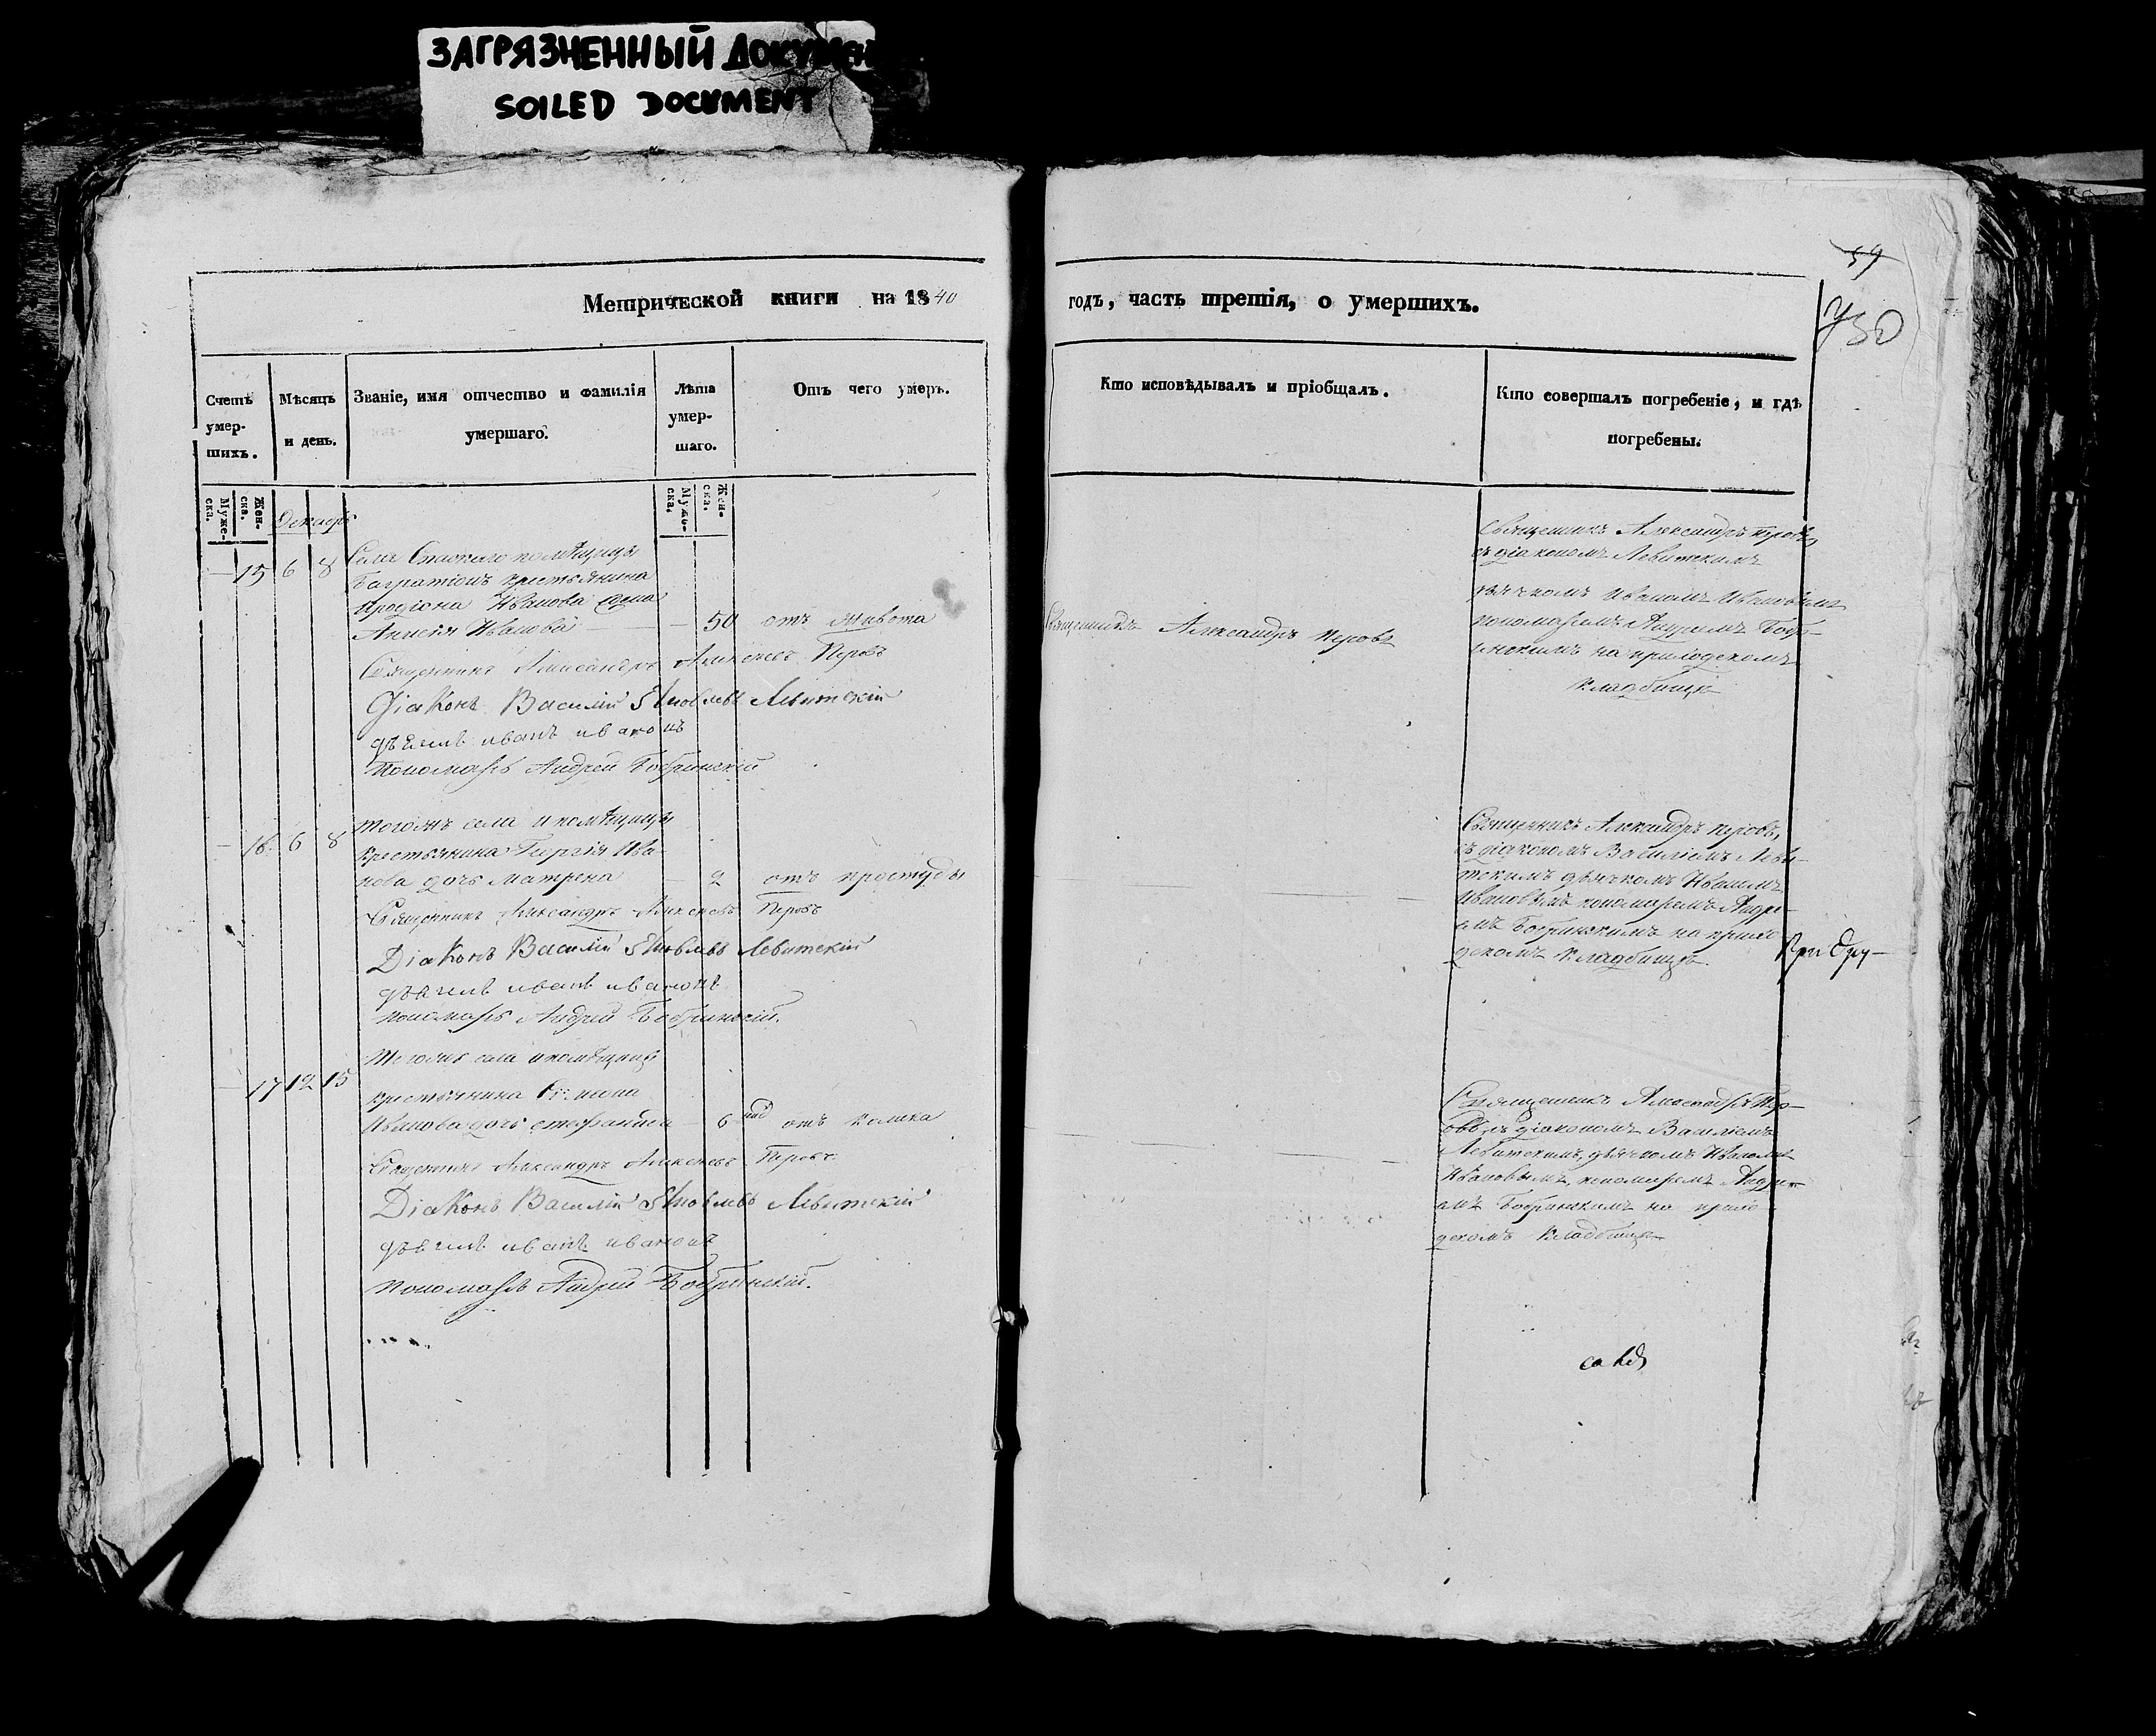 ЗАГРЯЗНЕННЫЙ ДОКУМЕН
SOILED DOCUMENT
59
730
Метрической книги на 1840
годъ, часть третія, о умершихъ.
Счетъ умер-шихъ.
Мѣсяцъ и день.
Званіе, имя отчество и фамилія умершаго.
Лѣта умер-шаго.
Отъ чего умеръ.
Кто исповѣдывалъ и пріобщалъ.
Кто совершалъ погребеніе, и гдѣ погребены.
Муже-ска.
Жен-ска.
Декабрь
Муже-ска.
Жен-ска.
— 15 6 8
Села Спаскаго помѣщицы
Багратіонъ крестьянина
Иродіона Иванова жена
Анисія Иванова — 50 отъ живота
Священникъ Александръ Перовъ
Священникъ Александръ Перовъ
съ діакономъ Левитскимъ
дьячкомъ Иваномъ Ивановымъ
пономаремъ Андреемъ Бобр-
инскимъ на приходскомъ
кладбищѣ
Священникъ Александръ Алексеевъ Перовъ
Діаконъ Василій Яковлевъ Левитскій
дьячекъ иванъ ивановъ
Пономарь Андрей Бобринскій
— 16. 6 8
Тогожъ села и помѣщицы
крестьянина Георгія Ива-
нова дочь Матрена — 2 отъ простуды
Священникъ Александръ Перовъ,
съ діакономъ Василіемъ Леви-
тскимъ дьячкомъ Иваномъ
Ивановымъ пономаремъ Андре-
емъ Бобринскимъ на прихо-
дскомъ кладбищѣ.
Священникъ Александръ Алексеевъ Перовъ
Діаконъ Василій Яковлевъ Левитскій
дьячекъ иванъ ивановъ
пономарь Андрей Бобринскій.
— 17 12 15
Тогожъ села и помѣщицы
крестьянина
Иванова дочь Стефанида — 6 нед отъ колика
Священникъ Александръ Пер-
овъ, съ діакономъ Василіемъ
Левитскимъ, дьячкомъ Иваномъ
Ивановымъ, пономаремъ Андре-
емъ Бобринскимъ на прихо-
дскомъ кладбищѣ
Священникъ Александръ Алексеевъ Перовъ
Діаконъ Василій Яковлевъ Левитскій
дьячекъ иванъ ивановъ
пономарь Андрей Бобринскій.